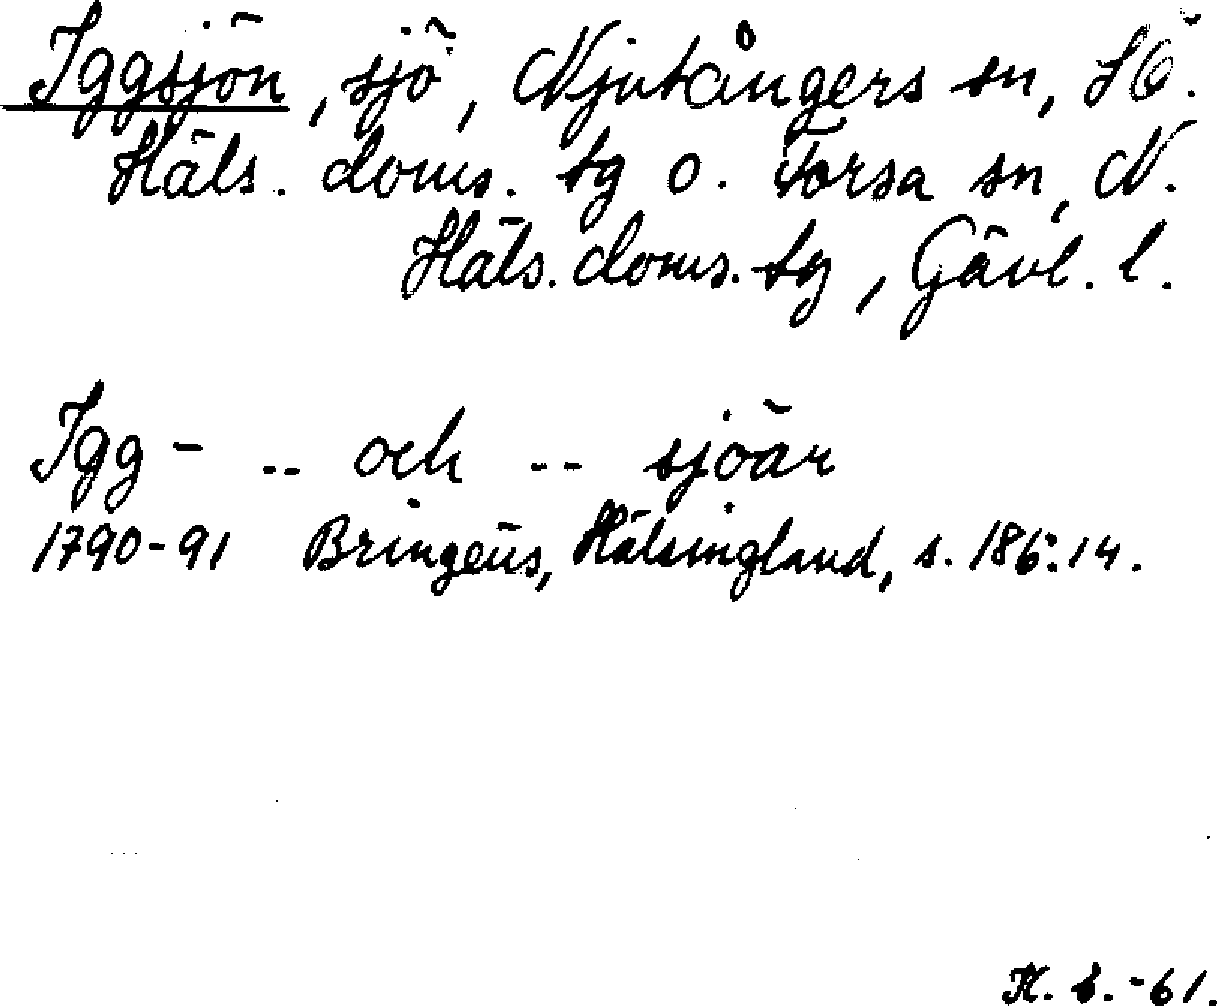 Iggsjön, sjö, Njutångers sn, SÖ.
Häls. doms. tg o. Forsa sn, N.
Häls. doms. tg, Gävl. l.
Igg- -- och -- sjöar
1790-91 Bringéus, Hälsingland, s. 186:14.
-61.